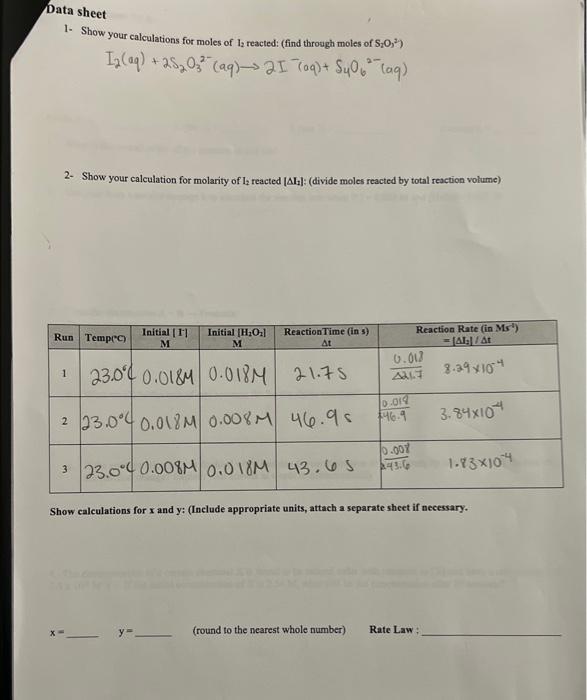 Data sheet
1- Show your calculations for moles of I₂ reacted: (find through moles of S₂O₃²⁻)
I₂(aq) + 2S₂O₃²⁻(aq) → 2I⁻(aq) + S₄O₆²⁻(aq)
2- Show your calculation for molarity of I₂ reacted [ΔI₂]: (divide moles reacted by total reaction volume)
Run Temp(°C) Initial [I⁻] M Initial [H₂O₂] M Reaction Time (in s) Δt Reaction Rate (in Ms⁻¹) = [ΔI₂] / Δt
1 23.0°C 0.018M 0.018M 21.7s 0.018 / Δ21.7 8.29×10⁻⁴
2 23.0°C 0.018M 0.008M 46.9s 0.018 / 46.9 3.84×10⁻⁴
3 23.0°C 0.008M 0.018M 43.6s 0.008 / 43.6 1.83×10⁻⁴
Show calculations for x and y: (Include appropriate units, attach a separate sheet if necessary.
x = ____ y = ____ (round to the nearest whole number) Rate Law : ____